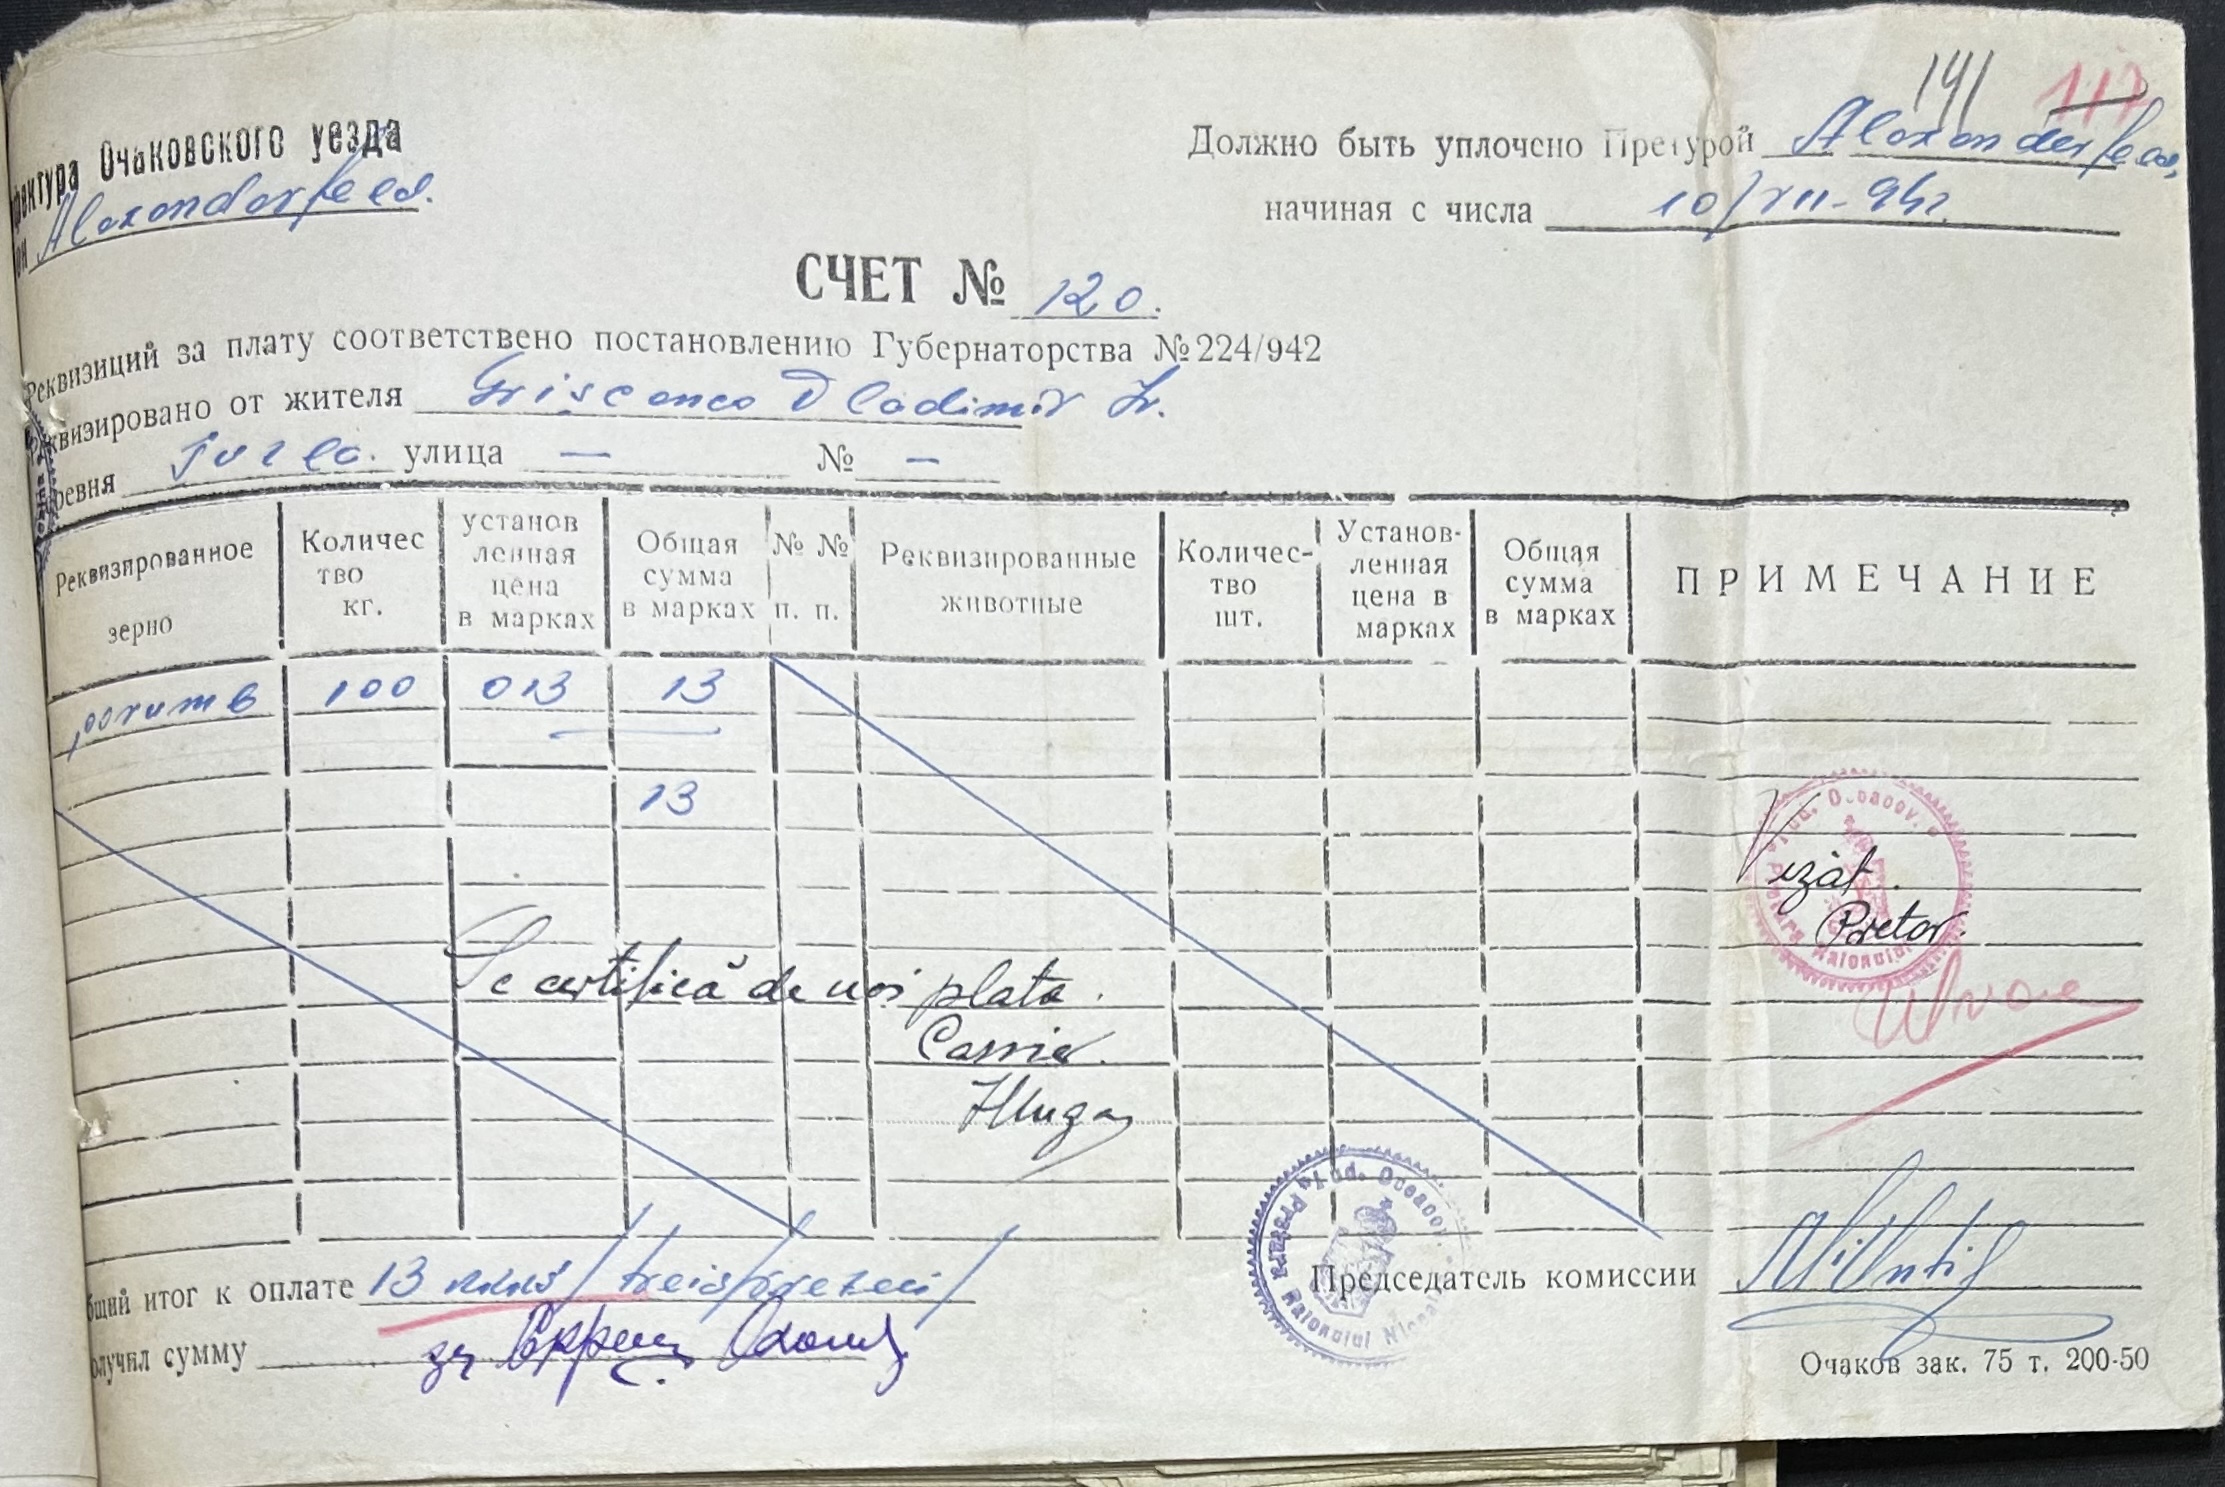 141 117
фектура Очаковского уезда
он Alexanderfeld.
Должно быть уплочено Претурой Alexanderfeld,
начиная с числа 10/VII-942.
СЧЕТ № 120.
Реквизиций за плату соответствено постановлению Губернаторства №224/942
квизировано от жителя Grisconco Vladimir Gr.
ревня улица — № —
Реквизированное зерно
Количес тво кг.
установ ленная цена в марках
Общая сумма в марках
№ № п. п.
Реквизированные животные
Количес- тво шт.
Установ- ленная цена в марках
Общая сумма в марках
ПРИМЕЧАНИЕ
porumb 100 013 13
13
Vizat.
Pretor.
Se certifică de noi plata.
Casier.
Pretura Raionului
Jud. Oceacov
Pretura Raionului
бщий итог к оплате 13
Председатель комиссии
олучил сумму за
Очаков зак. 75 т. 200-50